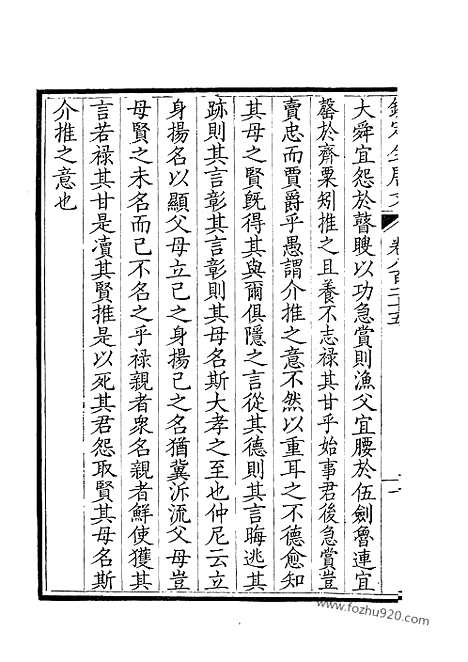 大舜宜怨於瞽瞍以功急賞則漁父宜腰於伍劍魯連宜
罄於齊粟矧推之且養不志禄其甘乎始事君後急賞豈
賣忠而賈爵乎愚謂介推之意不然以重耳之不德愈知
其母之賢旣得其與爾俱隱之言從其德則其言晦逃其
跡則其言彰其言彰則其母名斯大孝之至也仲尼云立
身揚名以顯父母立己之身揚己之名猶冀泝流父母豈
母賢之未名而已不名之乎禄親者衆名親者鮮使獲其
言若禄其甘是瀆其賢推是以死其君怨取賢其母名斯
介推之意也
www.fozhu920.com